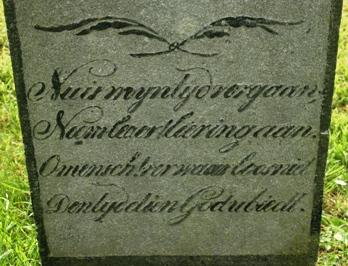 Nu is myn tyd vergaan,
Neem leer tleering aan.
O mensch! verwaarloos niet
Den tyd dien God u biedt.